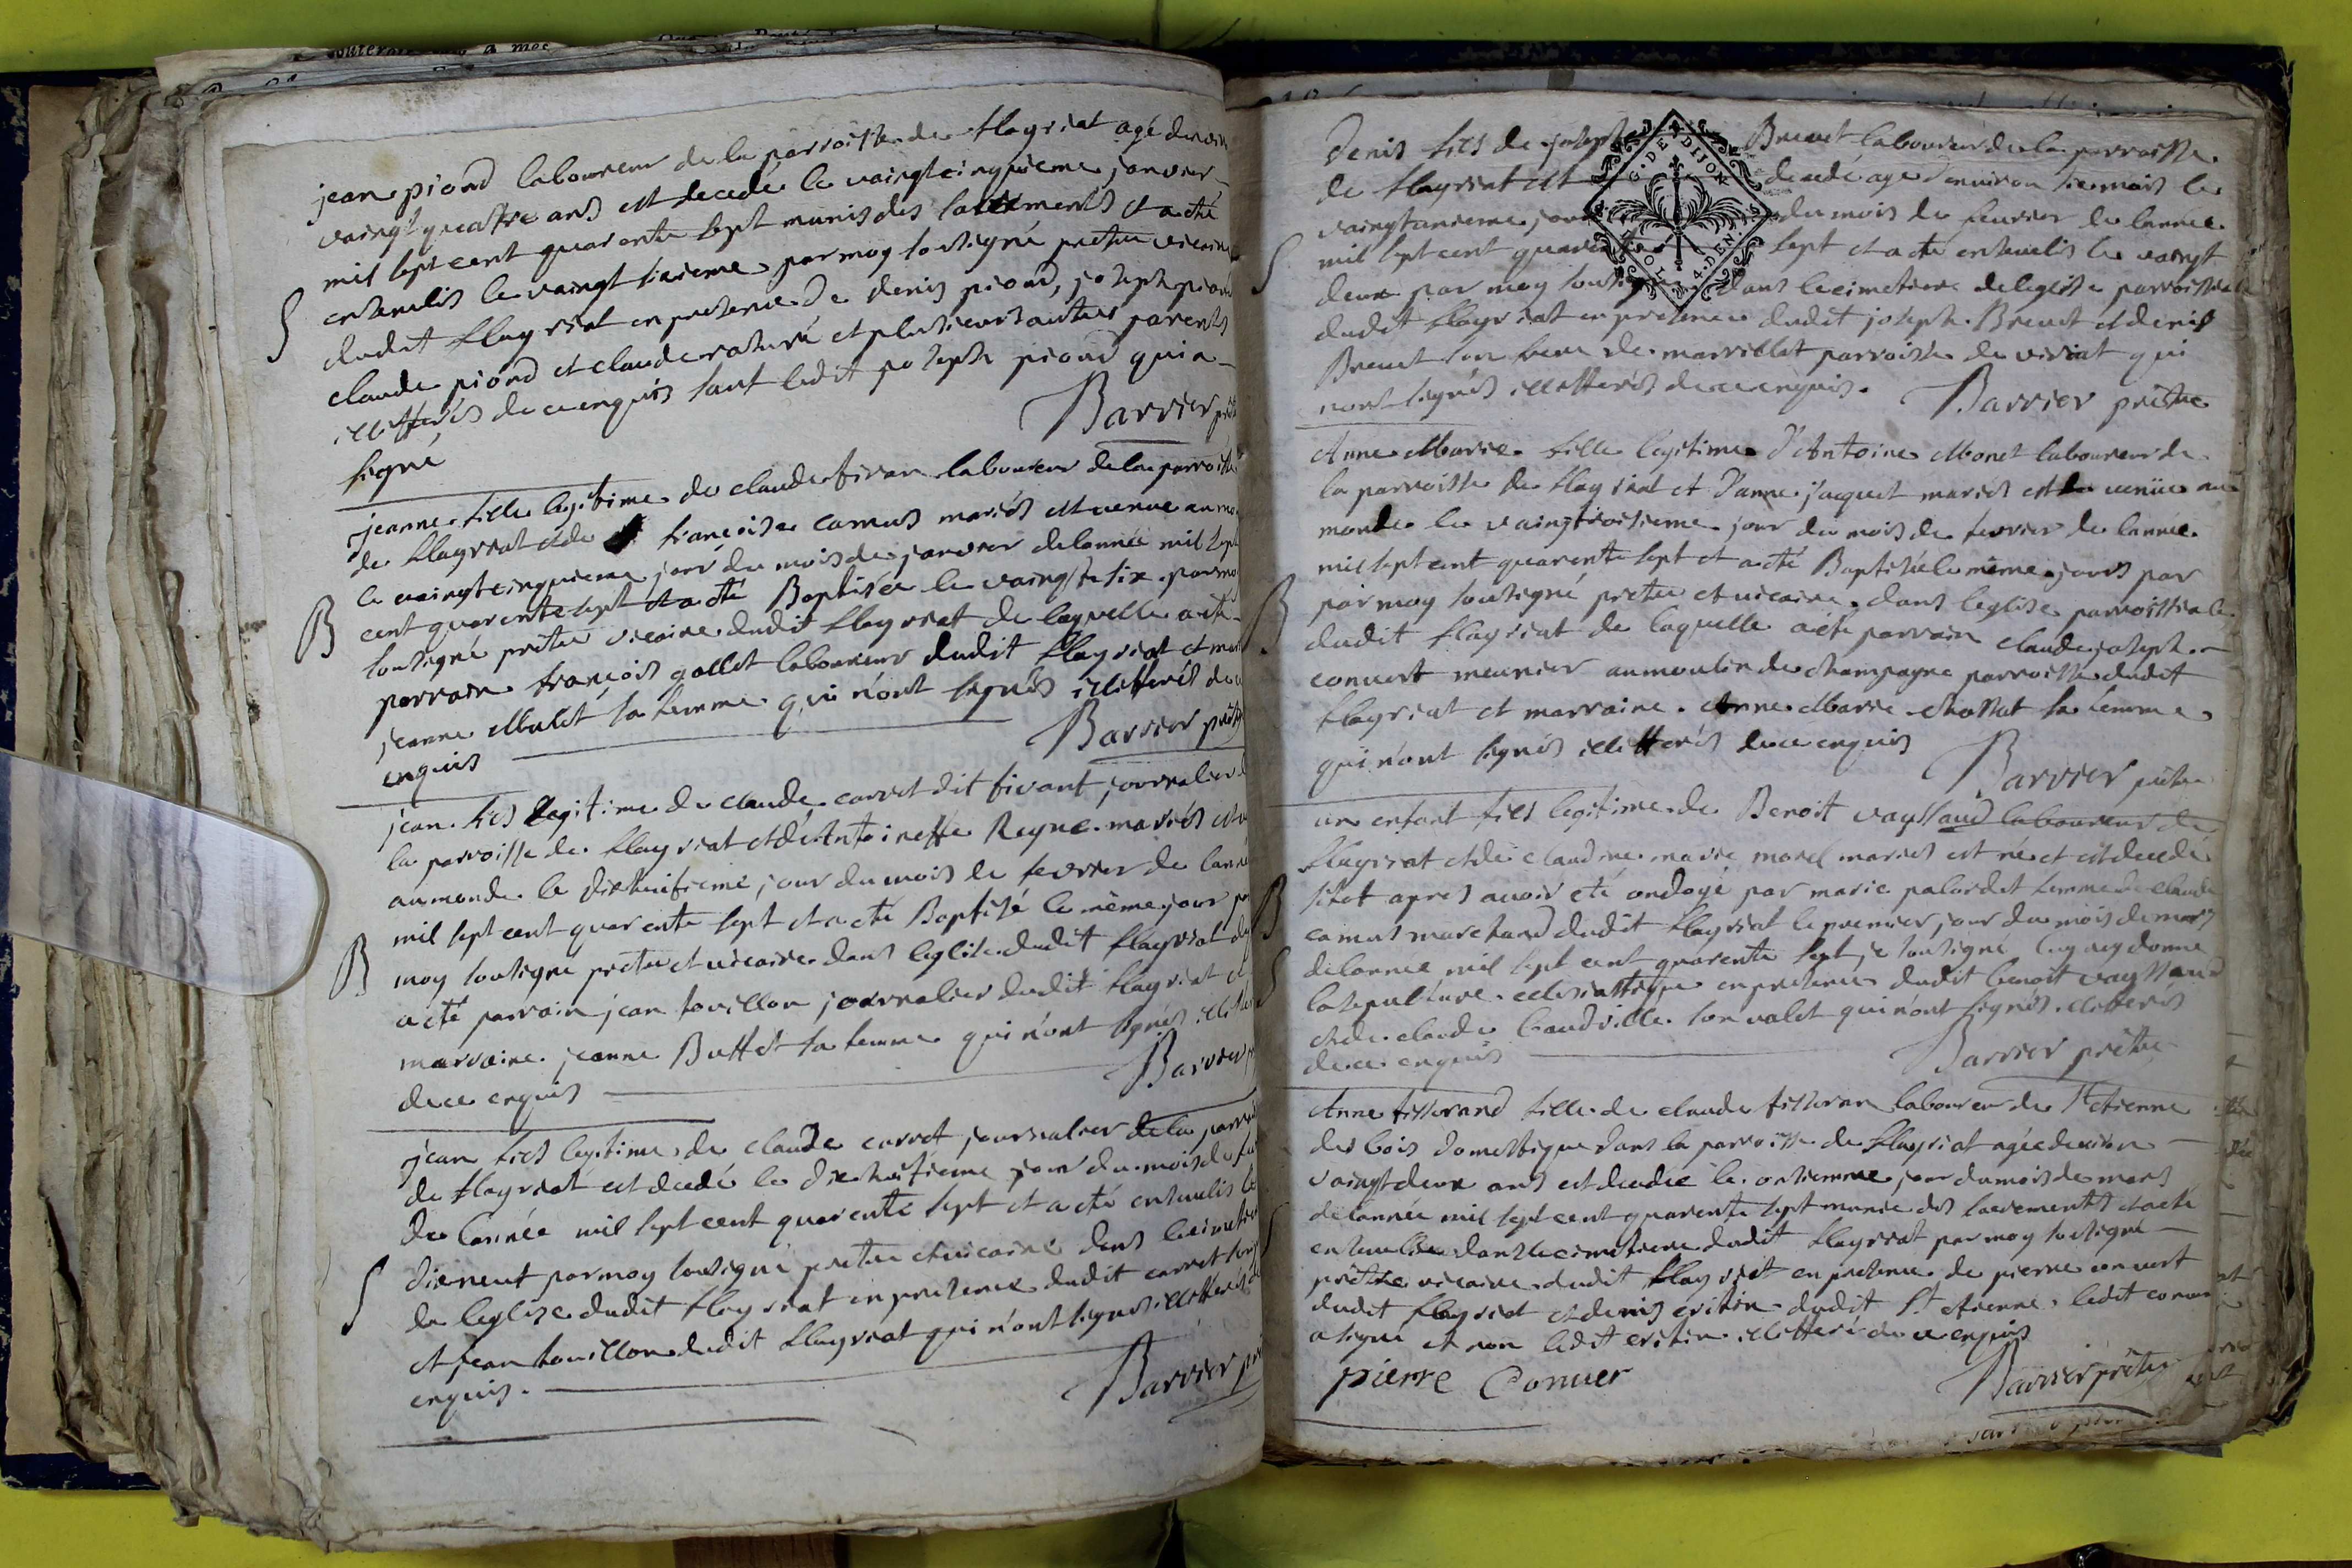 jean piond laboureur de la parroisse de flayriat agé denviron
vaingt quattre ans est decedé le vaingtcinquieme janvier
mil sept cent quarente sept munis des sacrements et a eté
S
ensevelis le vaingt sixieme par moy soussigné prêtre vicaire
dudit flayriat en presence de denis piond, joseph piond
claude piond et claude et plusieurs autres parents
illitterés de ce enquis sauf ledit joseph piond qui a
signé
Barrier prêtre
jeanne fille legitime de claude laboureur de la parroisse
de flayriat et de françoise camus mariés est venue au monde
le vaingtcinquieme jour du mois de janvier de lannée mil sept
B
cent quarente sept et a eté Baptisée le vaingt six par moy
soussigné prêtre vicaire dudit flayriat de laquelle a eté
parrain françois gallet laboureur dudit flayriat et marraine
jeanne Mulet sa femme qui n'ont signés illitterés de ce
enquis
Barrier prêtre
jean fils legitime de claude carret dit journalier de
la parroisse de flayriat et de Antoinette Reyne mariés est venu
au monde le dixhuitieme jour du mois de fevrier de lannée
B
mil sept cent quarente sept et a eté Baptisé le même jour par
moy soussigné prêtre et vicaire dans leglise dudit flayriat
a eté parrain jean touillon journalier dudit flayriat et
marraine jeanne Buttet sa femme qui n'ont signés illitterés
de ce enquis
Barrier
jean fils legitime de claude carret journalier de la parroisse
de flayriat est decedé le dixhuitieme jour du mois de
de lannée mil sept cent quarente sept et a eté ensevelis le
S
dixneuf par moy soussigné prêtre et vicaire dans le cimetiere
de leglise dudit flayriat en presence dudit carret
et jean touillon dudit flayriat qui n'ont signes illitterés de
enquis.
Barrier prêtre
Denis fils de joseph Breuet laboureur de la parroisse
de flayriat est decedé agé d'environ six mois le
vaingtunieme jour du mois de feuvrier de lannée
S
mil sept cent quarente sept et a eté ensevelis le vaingt
deux par moy soussigné dans le cimetiere de leglise parroissiale
dudit flayriat en presence dudit joseph Breuet et denis
Breuet son frere de marrillat parroisse de viriat qui
nont signés illitterés de ce enquis.
Barrier prêtre
G. DE DIJON
SOL. 4. DEN.
Anne Marie fille legitime d'Antoine Monet laboureur de
la parroisse de flayriat et d'anne jaquet mariés est venüe au
monde le vaingtroisieme jour du mois de fevrier de lannée
mil sept cent quarente sept et a eté Baptisée le même jours par
B
par moy soussigné prêtre et vicaire dans leglise parroissiale
dudit flayriat de laquelle a eté parrain claude joseph
convert meunier au moulin de champagne parroisse dudit
flayriat et marraine Anne Marie chossat sa femme
qui n'ont signés illitterés de ce enquis
Barrier prêtre
un enfant fils legitime de Benoit vayssaud laboureur de
flayriat et de claudine marie morel mariés est né et est decedé
B
sitot apres avoir eté ondoyé par marie palordet femme de claude
camus marchand dudit flayriat le premier jour du mois de mars
S
de lannée mil sept cent quarente sept je soussigné luy ay donné
la sepulture eclesiastique en presence dudit benoit vayssaud
et de claude son valet qui n'ont signés illitterés
de ce enquis
Barrier prêtre
Anne tisserand fille de claude tisseran laboureur de St etienne
des bois domestique dans la parroisse de flayriat agée denviron
vaingtdeux ans est decedée le onsiemme jour du mois de mars
de lannée mil sept cent quarente sept munie des sacrements et a eté
S
ensevelie dans le cimetiere dudit flayriat par moy soussigné
prêtre vicaire dudit flayriat en presence de pierre convert
dudit flayriat et denis dudit St etienne, ledit convert
a signé et non ledit illitteré de ce enquis
pierre Conver
Barrier prêtre